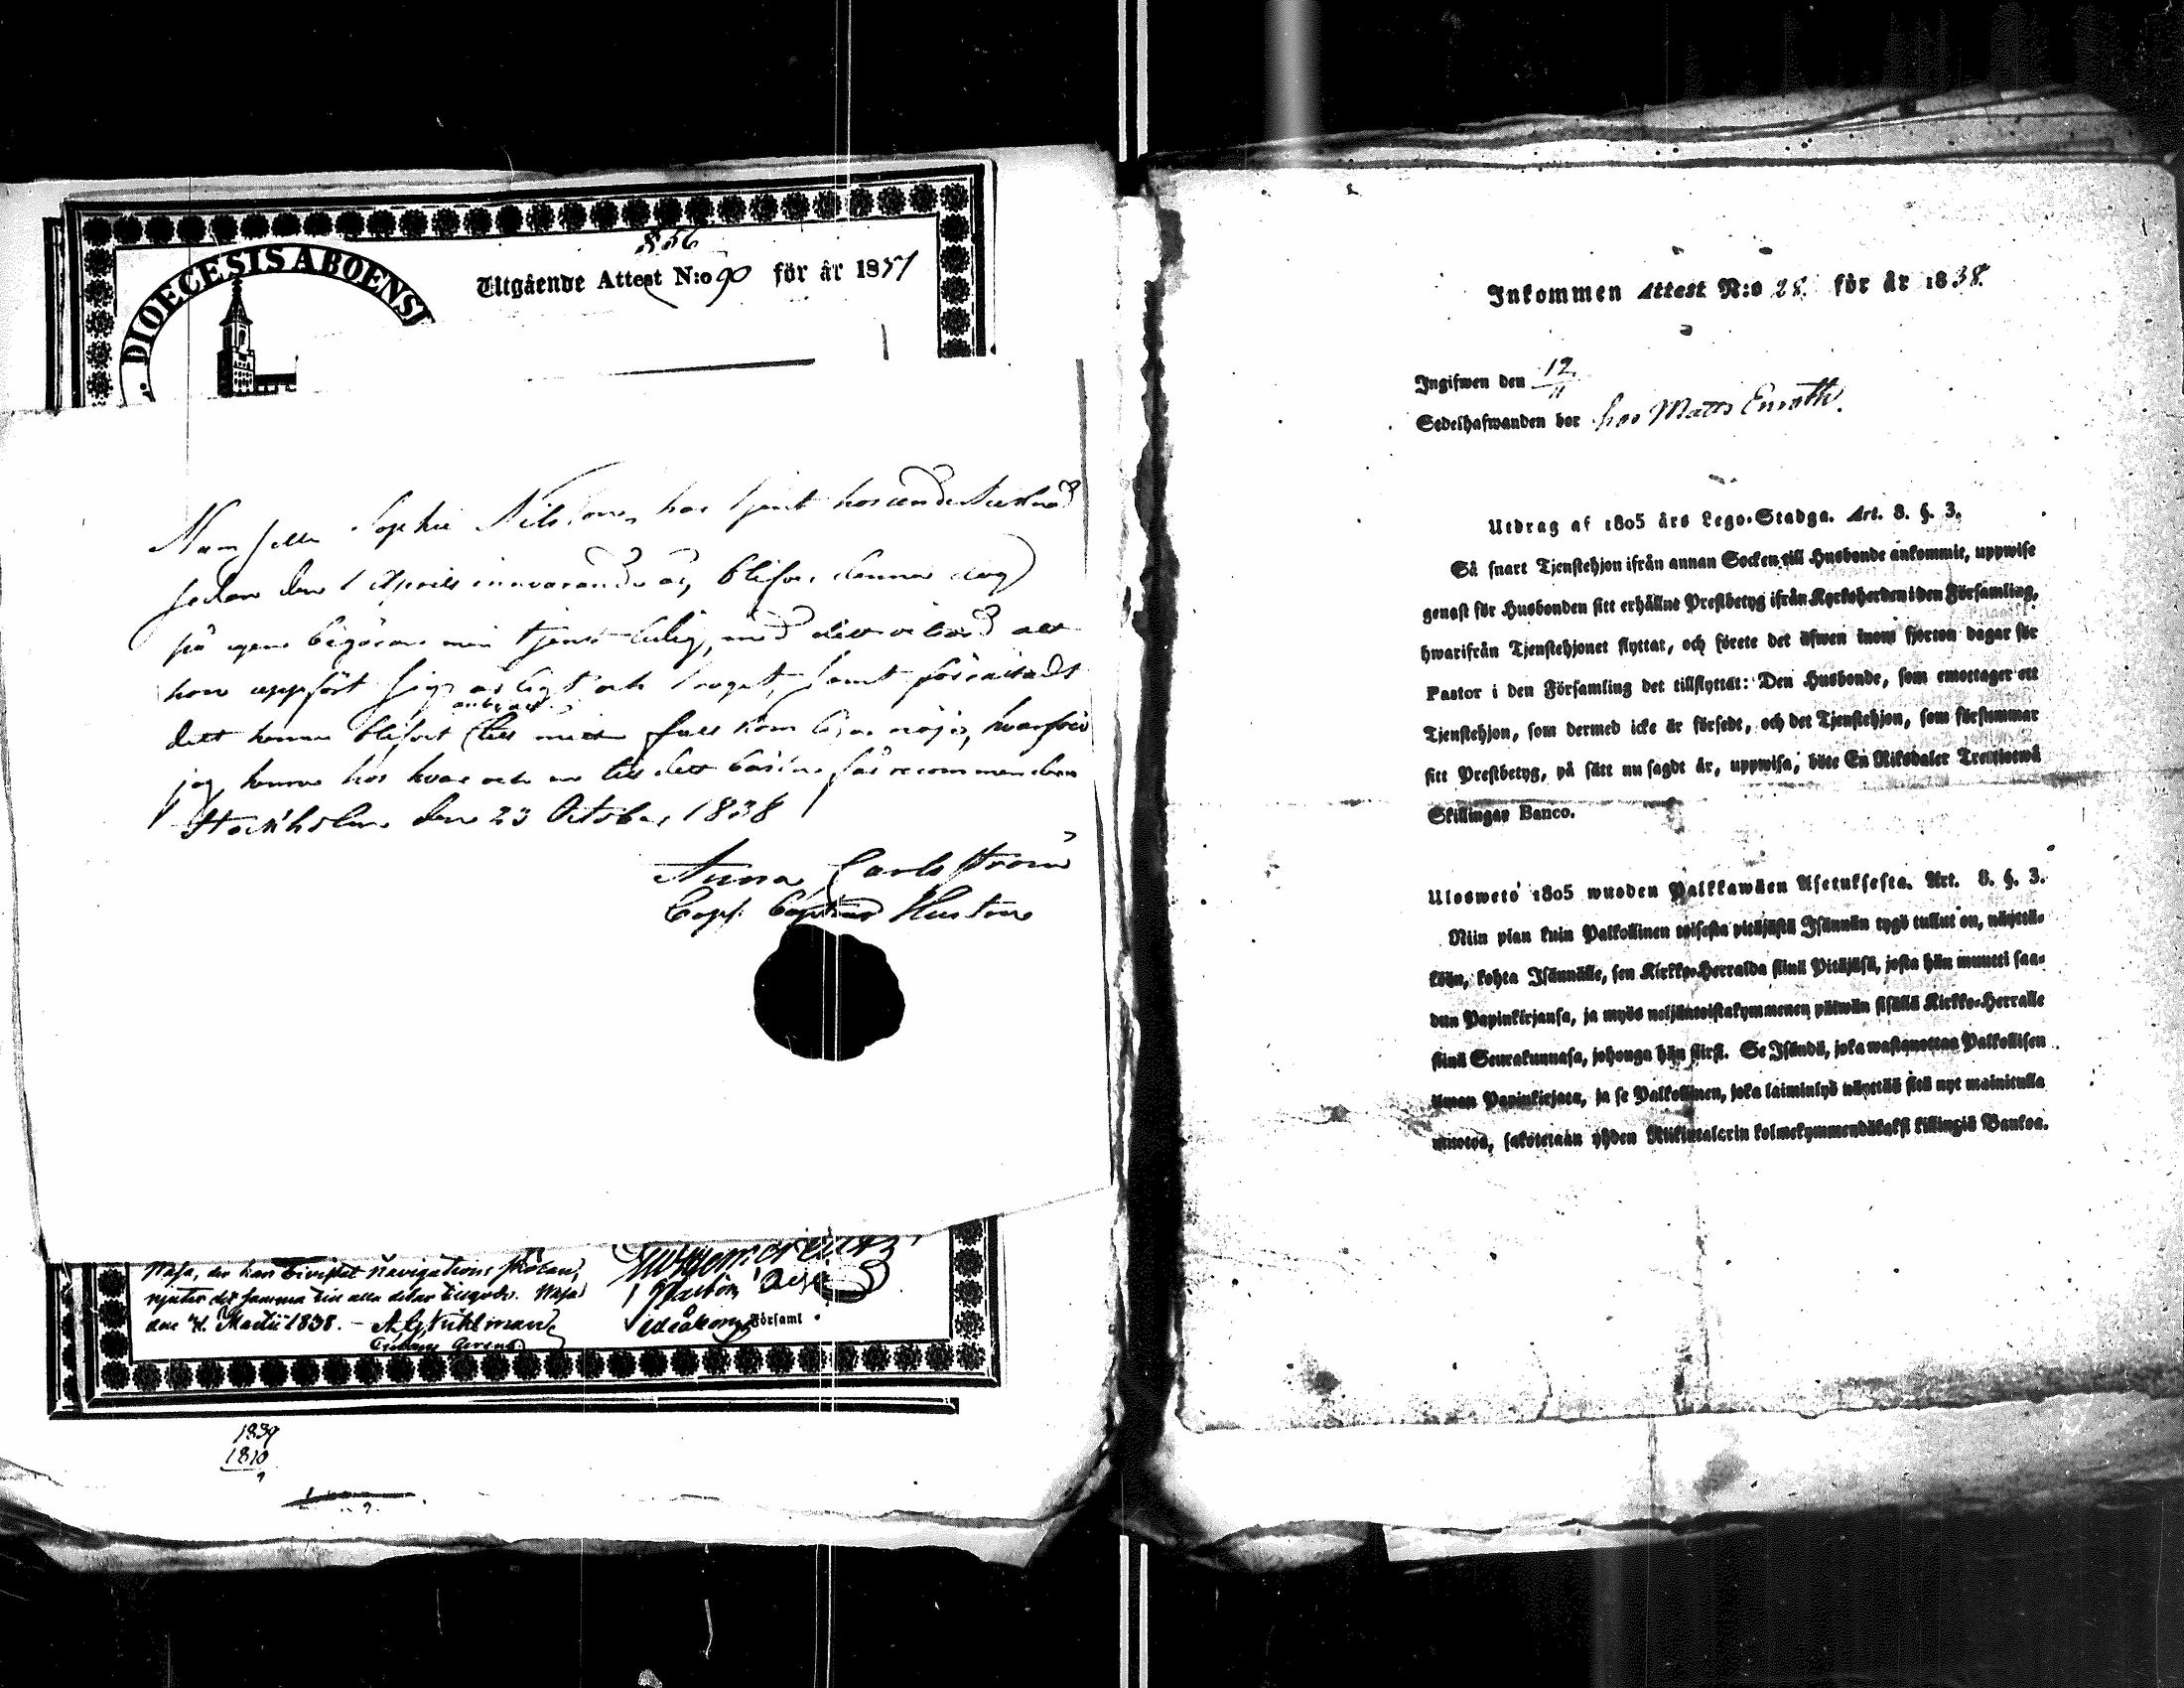 856
Utgående Attest N:o 90 för år 1851
DIOECESIS ABOENSI
Mamsell Sophie Nilsson, har tjent hos undertecknad
sedan den 1 Aprill innevarande år, blifver denna dag
på egen begäran min tjenst ledig, med
hon uppfört sig ärligt och troget, samt förrättadt
anbetrodt
dett henne blifvit till mitt fullkomliga nöje, hvarföre
jag henne hos hvar och en till dett bästa får recommendera
Stockholm den 23 October 1838
Anna Carlström
Huston
Wasa, der han bivistat Navigations skolan,
njuter det samma till alla delar Wasa
den Martii 1838.
Församl.
1839
1810
9
Inkommen Attest N:o 28. för år 1838.
Ingifwen den 12/11
Sedelhafwanden bor hos Matts Enroth.
Utdrag af 1805 års Lego-Stadga. Art. 8. §. 3.
Så snart Tjenstehjon ifrån annan Socken till Husbonde ankommit, uppwise
genast för Husbonden sitt erhållne Prestbetyg ifrån Kyrkoherden i den Församling,
hwarifrån Tjenstehjonet flyttat, och förete det äfwen inom fjorton dagar för
Pastor i den Församling det tillflyttat: Den Husbonde, som emottager ett
Tjenstehjon, som dermed icke är försedt, och det Tjenstehjon, som försummar
sitt Prestbetyg, på sätt nu sagdt är, uppwisa, böte En Riksdaler Trettiotwå
Skillingar Banco.
Uloswetö 1805 wuoden Palkkawäen Asetuksesta. Art. 8. §. 3.
Niin pian kuin Palkollinen toisesta pitäjästä Isännän tygö tullut on, näyttä-
köön, kohta Isännälle, sen Kirkko-Herralda siinä Pitäjäsä, josta hän muutti saa-
dun Papinkirjansa, ja myös neljäntoistakymmenen päiwän sisällä Kirkko-Herralle
siinä Seurakunnasa, johonga hän siirsi. Se Isändä, joka wastanottaa Palkollisen
ilman Papinkirjata, ja se Palkollinen, joka laiminlyö näyttää sitä nyt mainitulla
muotoa, sakotetaan yhden Riikintalerin kolmekymmendäkaksi killingiä Bankoa.